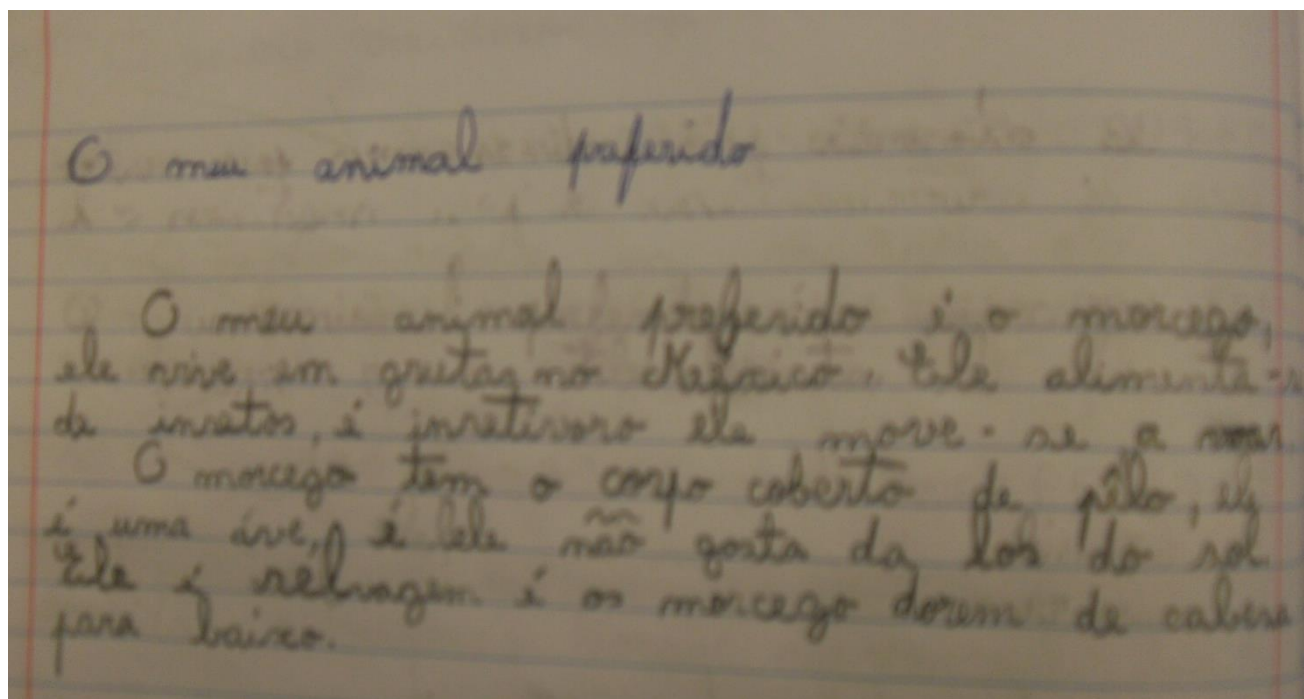 O meu animal preferido
O meu animal preferido é o morcego,
ele vive em grutas no Ele alimenta-s
de insetos, é insetívoro ele move-se a voar
O morcego tem o corpo coberto de pêlo, ele
é uma áve, é ele não gosta da los do sol
Ele é selvagem é os morcego dorem de cabesa
para baixo.